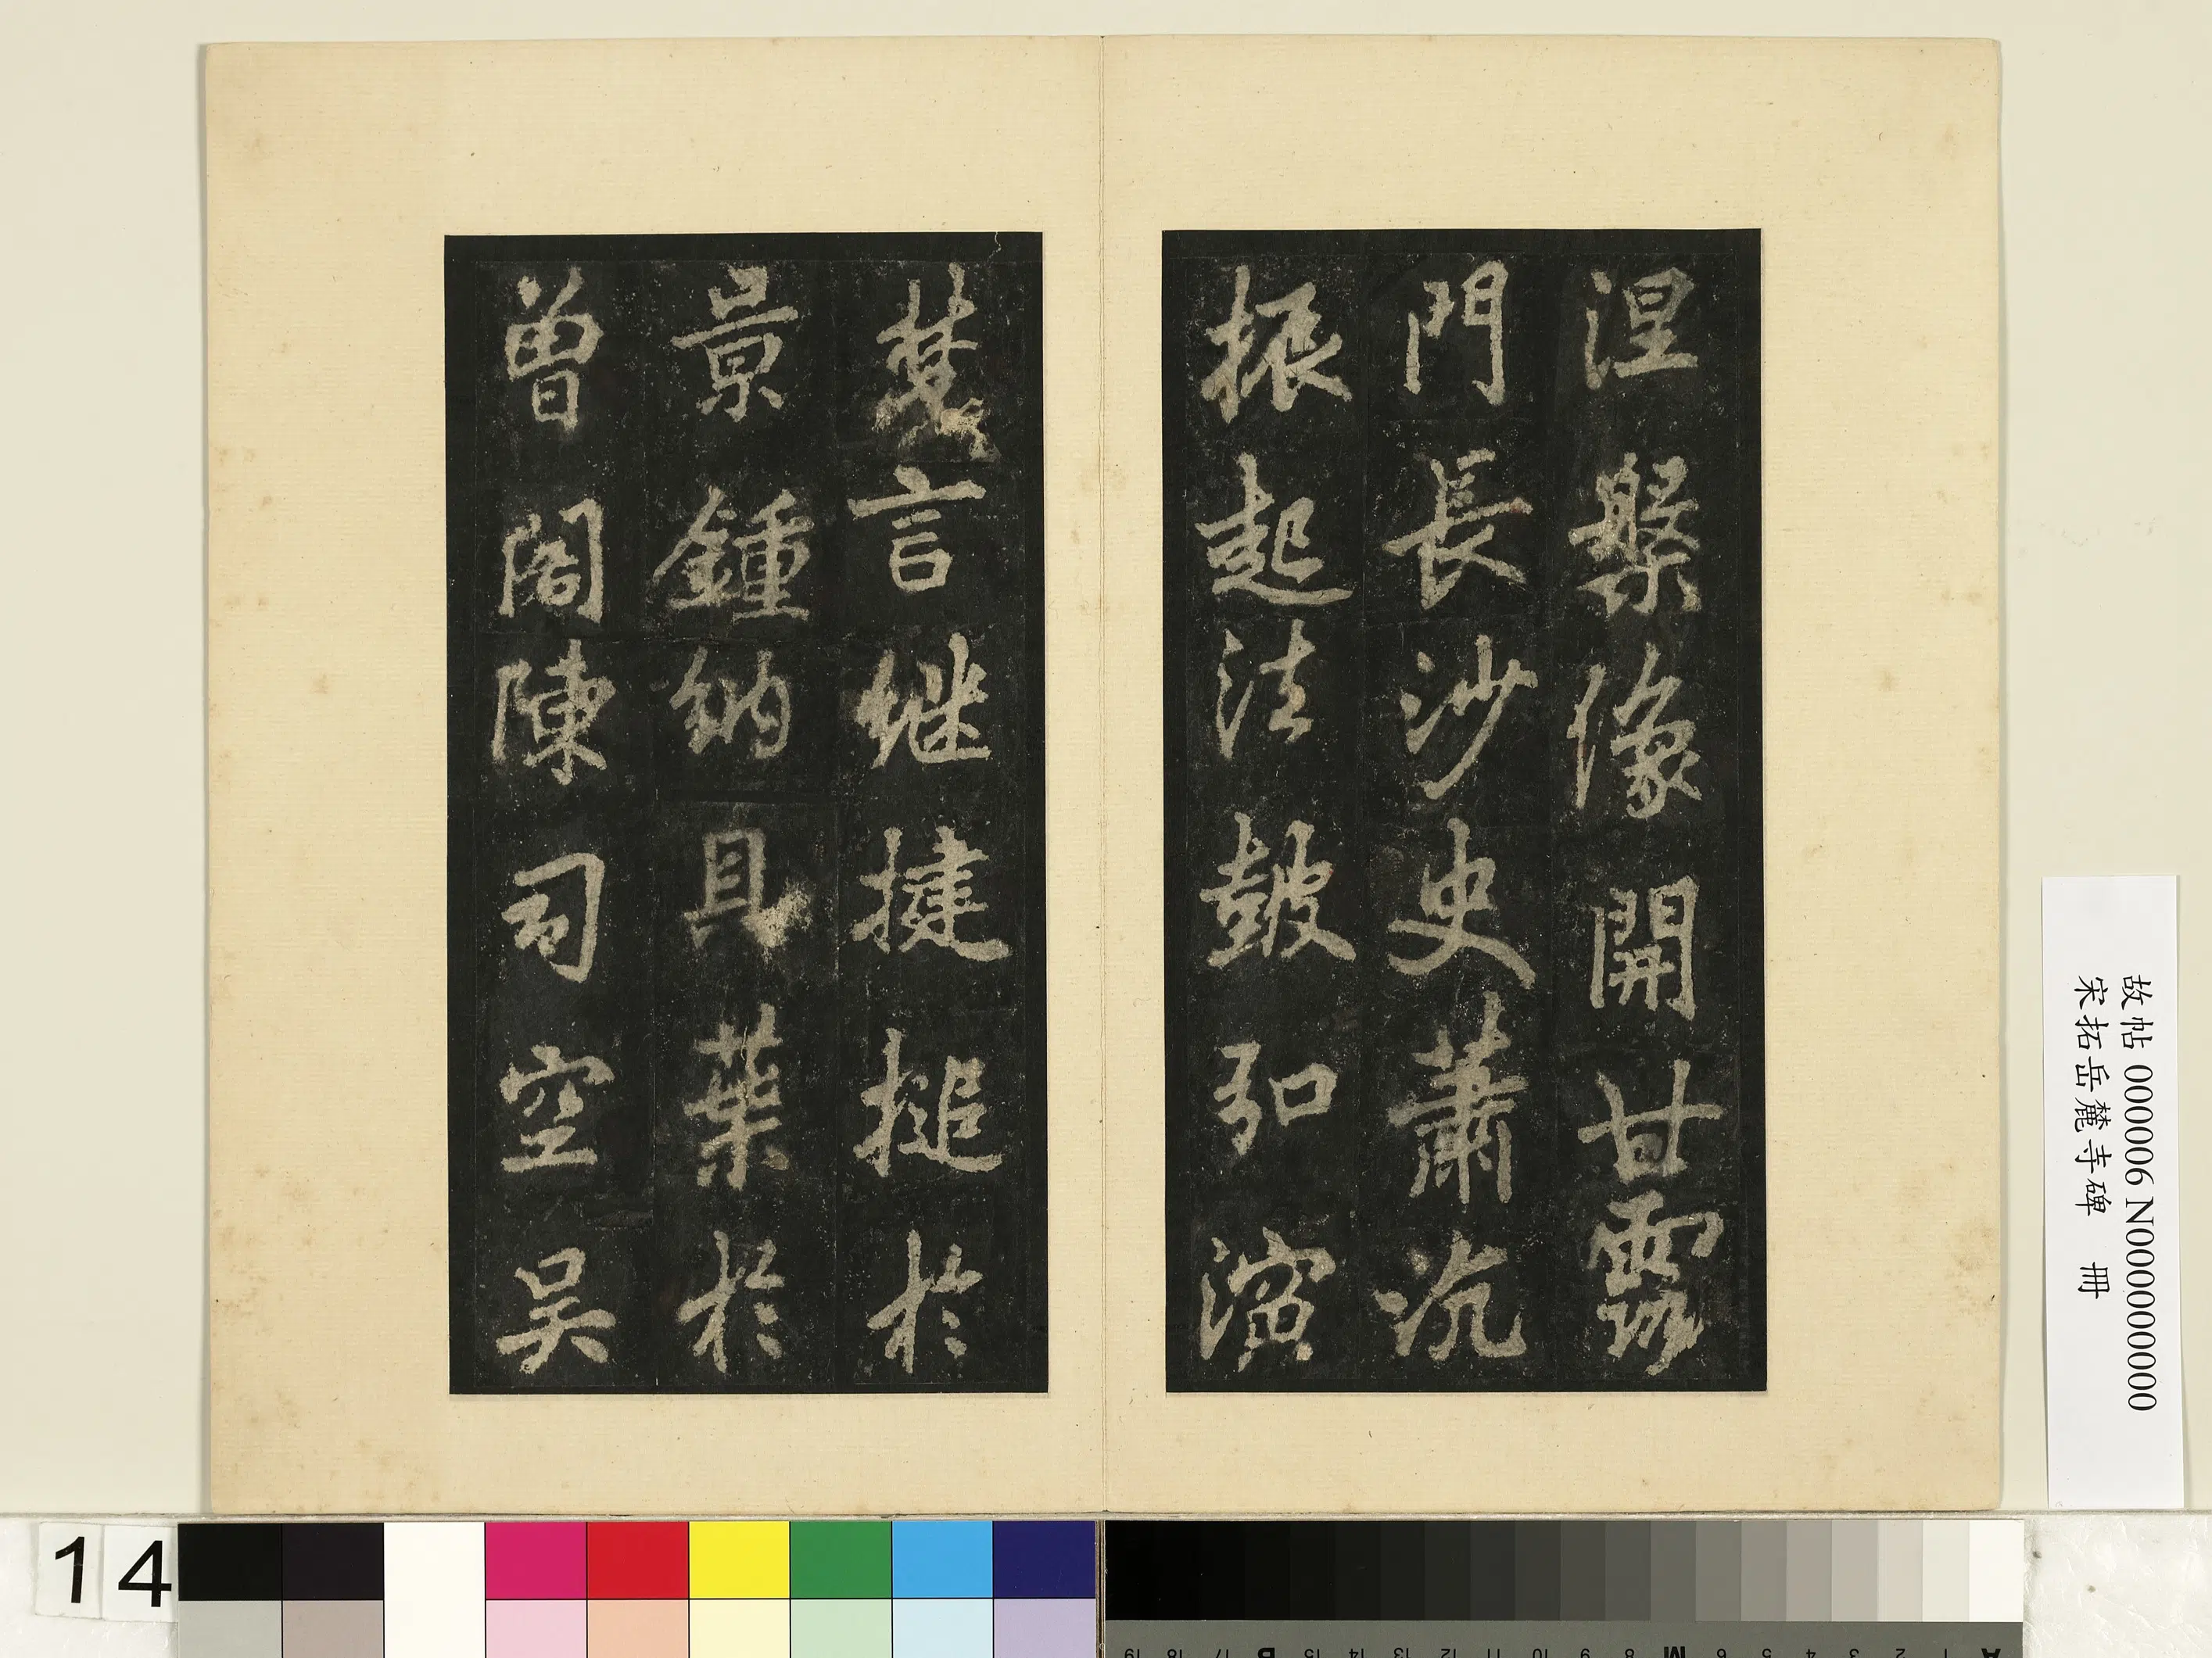 涅槃像開甘露
門長沙史蕭沆
振起法鼓弘演
梵言継揵搥於
景鍾納貝葉於
曽閣陳司空吳
故帖 000006 N000000000
宋拓岳麓寺碑 冊
14
A 1 2 3 4 5 6 M 8 9 10 11 12 13 14 15 B 17 18 19